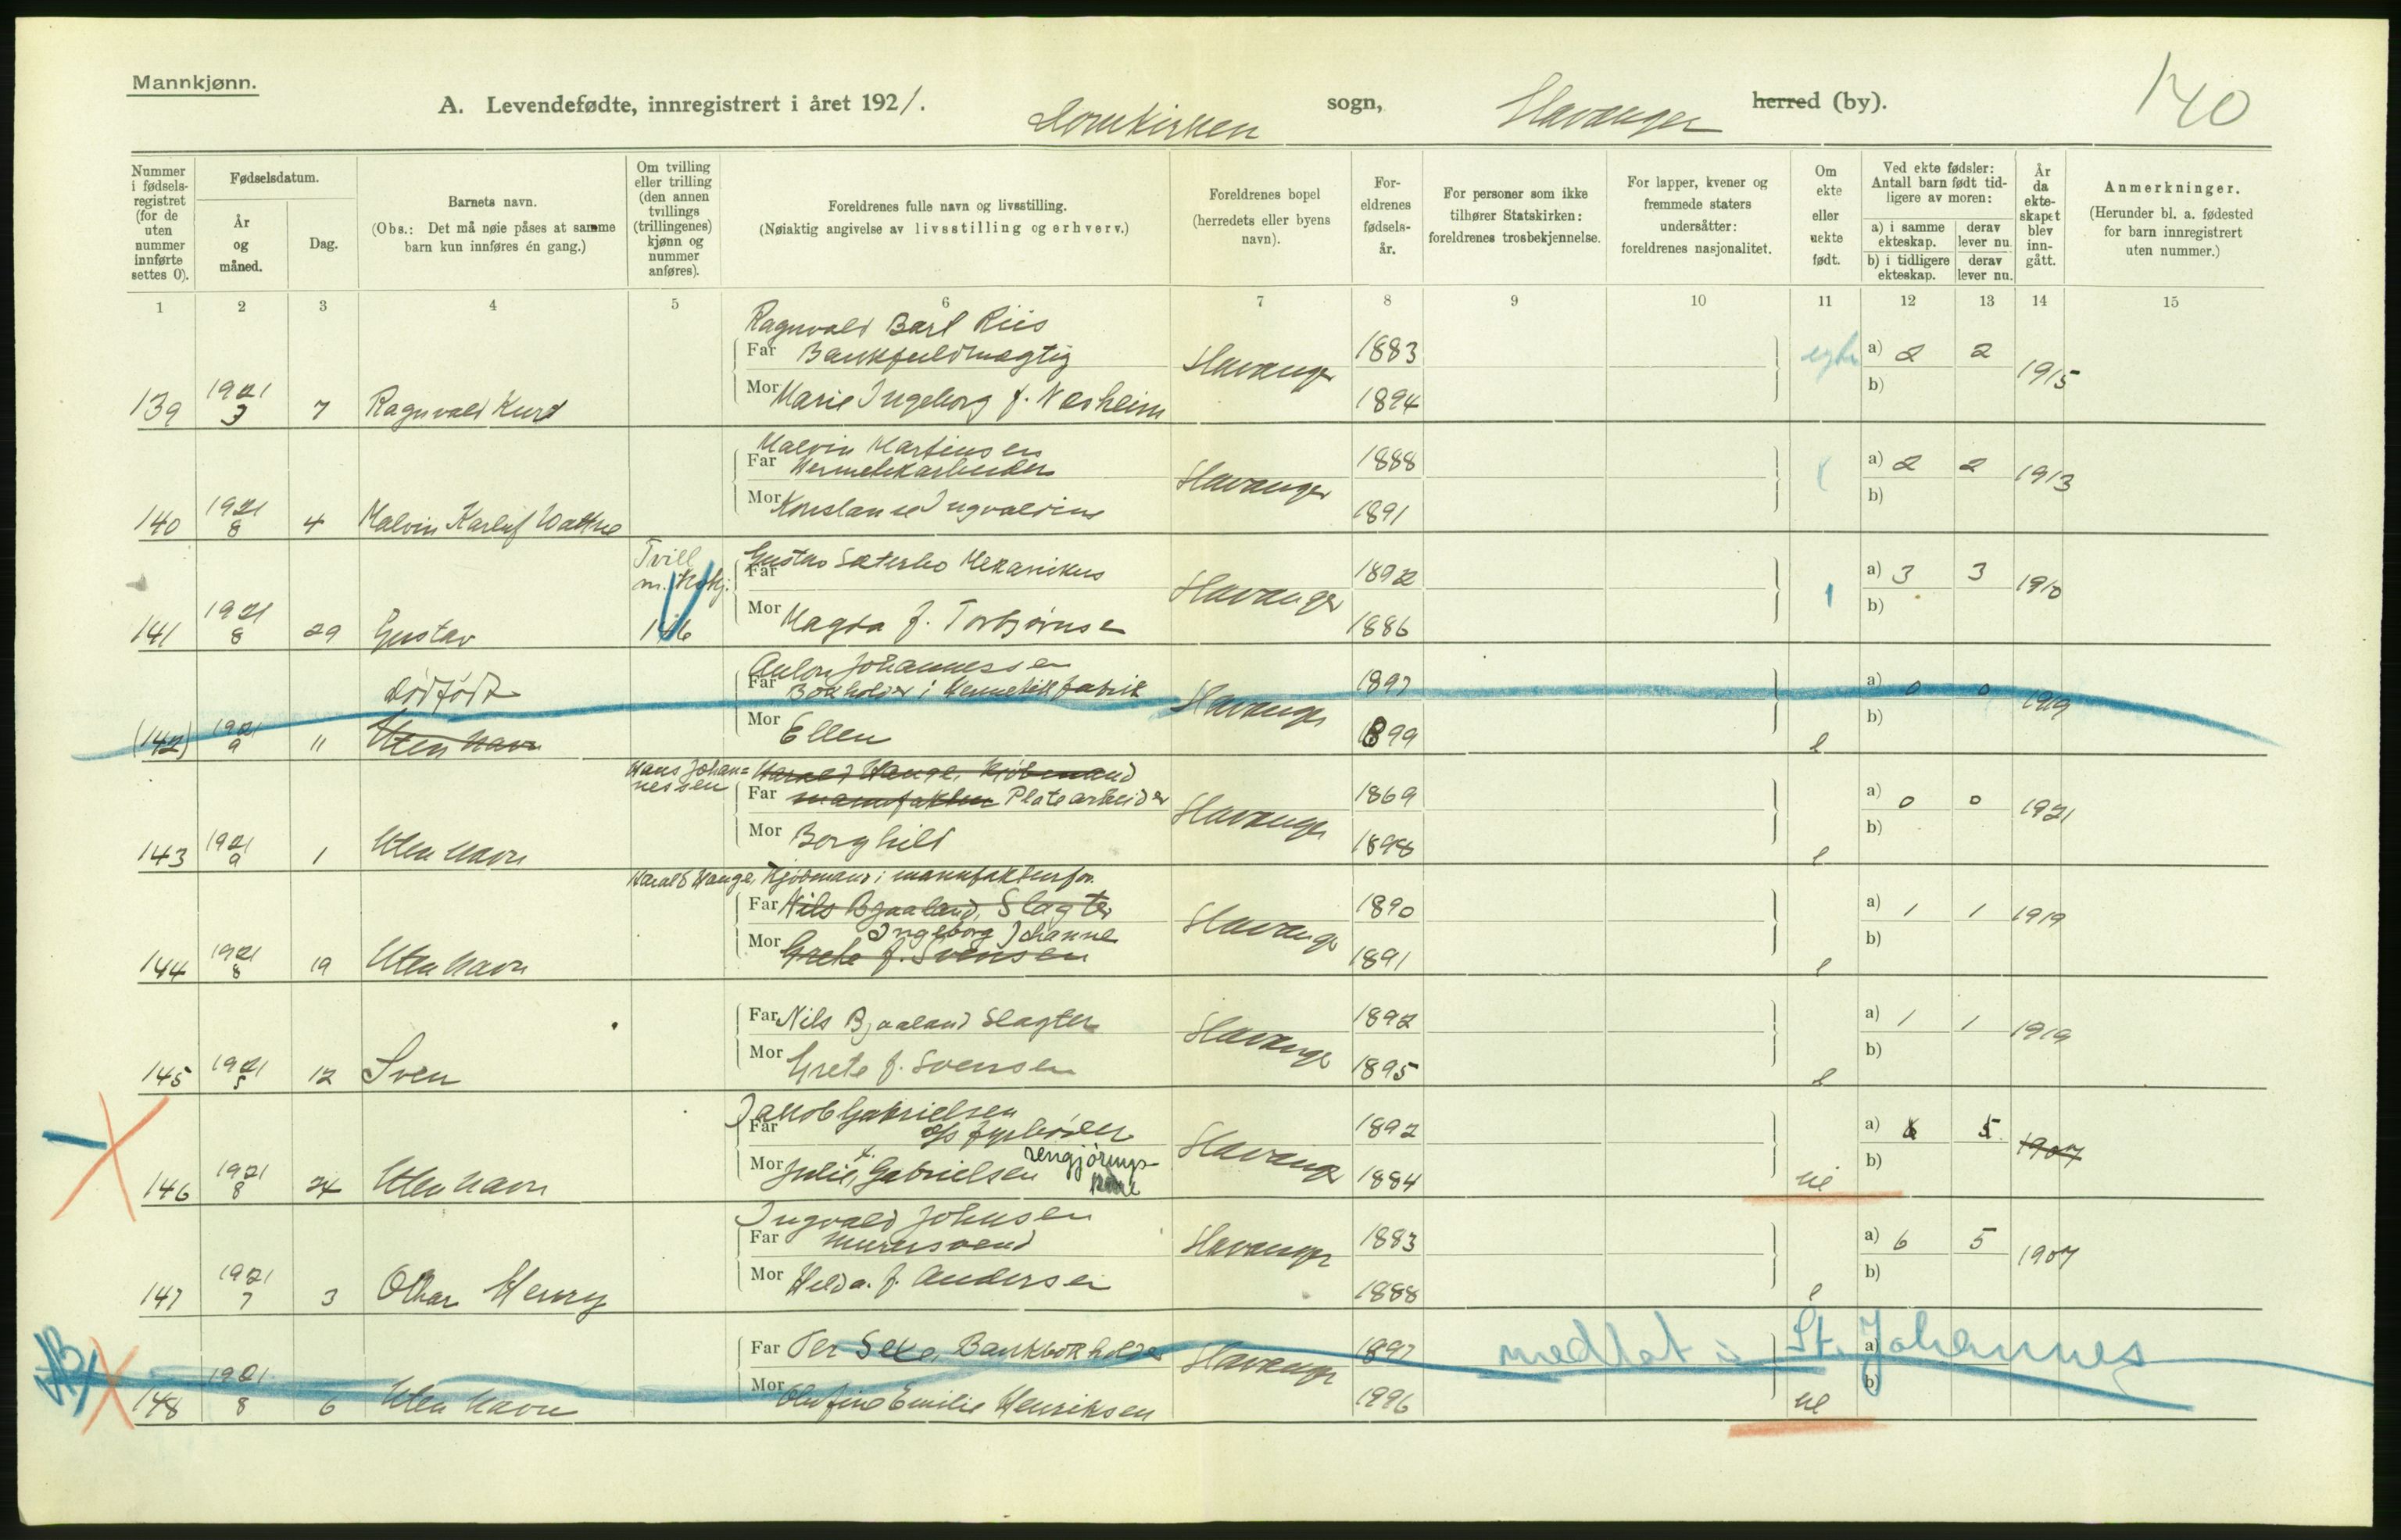 Mannkjønn.
A. Levendefødte, innregistrert i året 1921. Domkirken sogn, Stavanger herred (by). 140
Nummer i fødselsregistret (for de uten nummer innførte settes 0).
Fødselsdatum.
År og måned.
Dag.
Barnets navn.
(Obs.: Det må nøie påses at samme barn kun innføres én gang.)
Om tvilling eller trilling (den annen tvillings (trillingenes) kjønn og nummer anføres).
Foreldrenes fulle navn og livsstilling.
(Nøiaktig angivelse av livsstilling og erhverv.)
Foreldrenes bopel (herredets eller byens navn).
Foreldrenes fødselsår.
For personer som ikke tilhører Statskirken: foreldrenes trosbekjennelse.
For lapper, kvener og fremmede staters undersåtter: foreldrenes nasjonalitet.
Om ekte eller uekte født.
Ved ekte fødsler: Antall barn født tidligere av moren:
a) i samme ekteskap. derav lever nu.
b) i tidligere ekteskap. derav lever nu.
År da ekteskapet blev inngått.
Anmerkninger.
(Herunder bl. a. fødested for barn innregistrert uten nummer.)
1 2 3 4 5 6 7 8 9 10 11 12 13 14 15
Ragnvald Barl Riis
Far Bankfuldmægtig Stavanger 1883 a) 2 2 1915
139 1921 3 7 Ragnvald Kurt Mor Marie Ingeborg f. Nesheim 1894 b)
Malvin Martinsen
Far Hermetikarbeider Stavanger 1888 a) 2 2 1913
140 1921 8 4 Malvin Karluf Wathne Mor Konstanse Ingvaldine 1891 b)
Tvill m. Kvkj. 146
Far Gustav Sæterbø Mekanikus Stavanger 1892 a) 3 3 1910
141 1921 8 29 Gustav Mor Magda f. Torbjørnsen 1886 b)
Anton Johannessen
dødfødt Far Bokholder i Hermetikfabrik Stavanger 1897 a) 0 0 1919
(142) 1921 9 11 Uten navn Mor Ellen 1899 e b)
Hans Johannessen Harald Hauge, Kjøbmand
Far manufaktur Platearbeider Stavanger 1869 a) 0 0 1921
143 1921 9 1 Uten navn Mor Borghild 1898 e b)
Harald Hauge, Kjøbmand i manufakturfor.
Far Nils Bjaaland, Slagter Stavanger 1890 a) 1 1 1919
Ingeborg Johanne
144 1921 8 19 Uten navn Mor Grete f. Svensen 1891 e b)
Far Nils Bjaaland Slagter Stavanger 1892 a) 1 1 1919
145 1921 5 12 Sven Mor Grete f. Svensen 1895 e b)
Jakob Gabrielsen
Far d/s fyrbøder Stavanger 1892 a) 6 5 1907
146 1921 8 24 Uten navn Mor Julie Gabrielsen rengjøringskone 1884 ue b)
Ingvald Johnsen
Far murersvend Stavanger 1883 a) 6 5 1907
147 1921 7 3 Othar Henry Mor Hilda f. Andersen 1888 e b)
Far Per Sexe, Bankbokholder Stavanger 1897 medtat i St. Johannes a)
148 1921 8 6 Uten navn Mor Olufine Emilie Henriksen 1996 ue b)